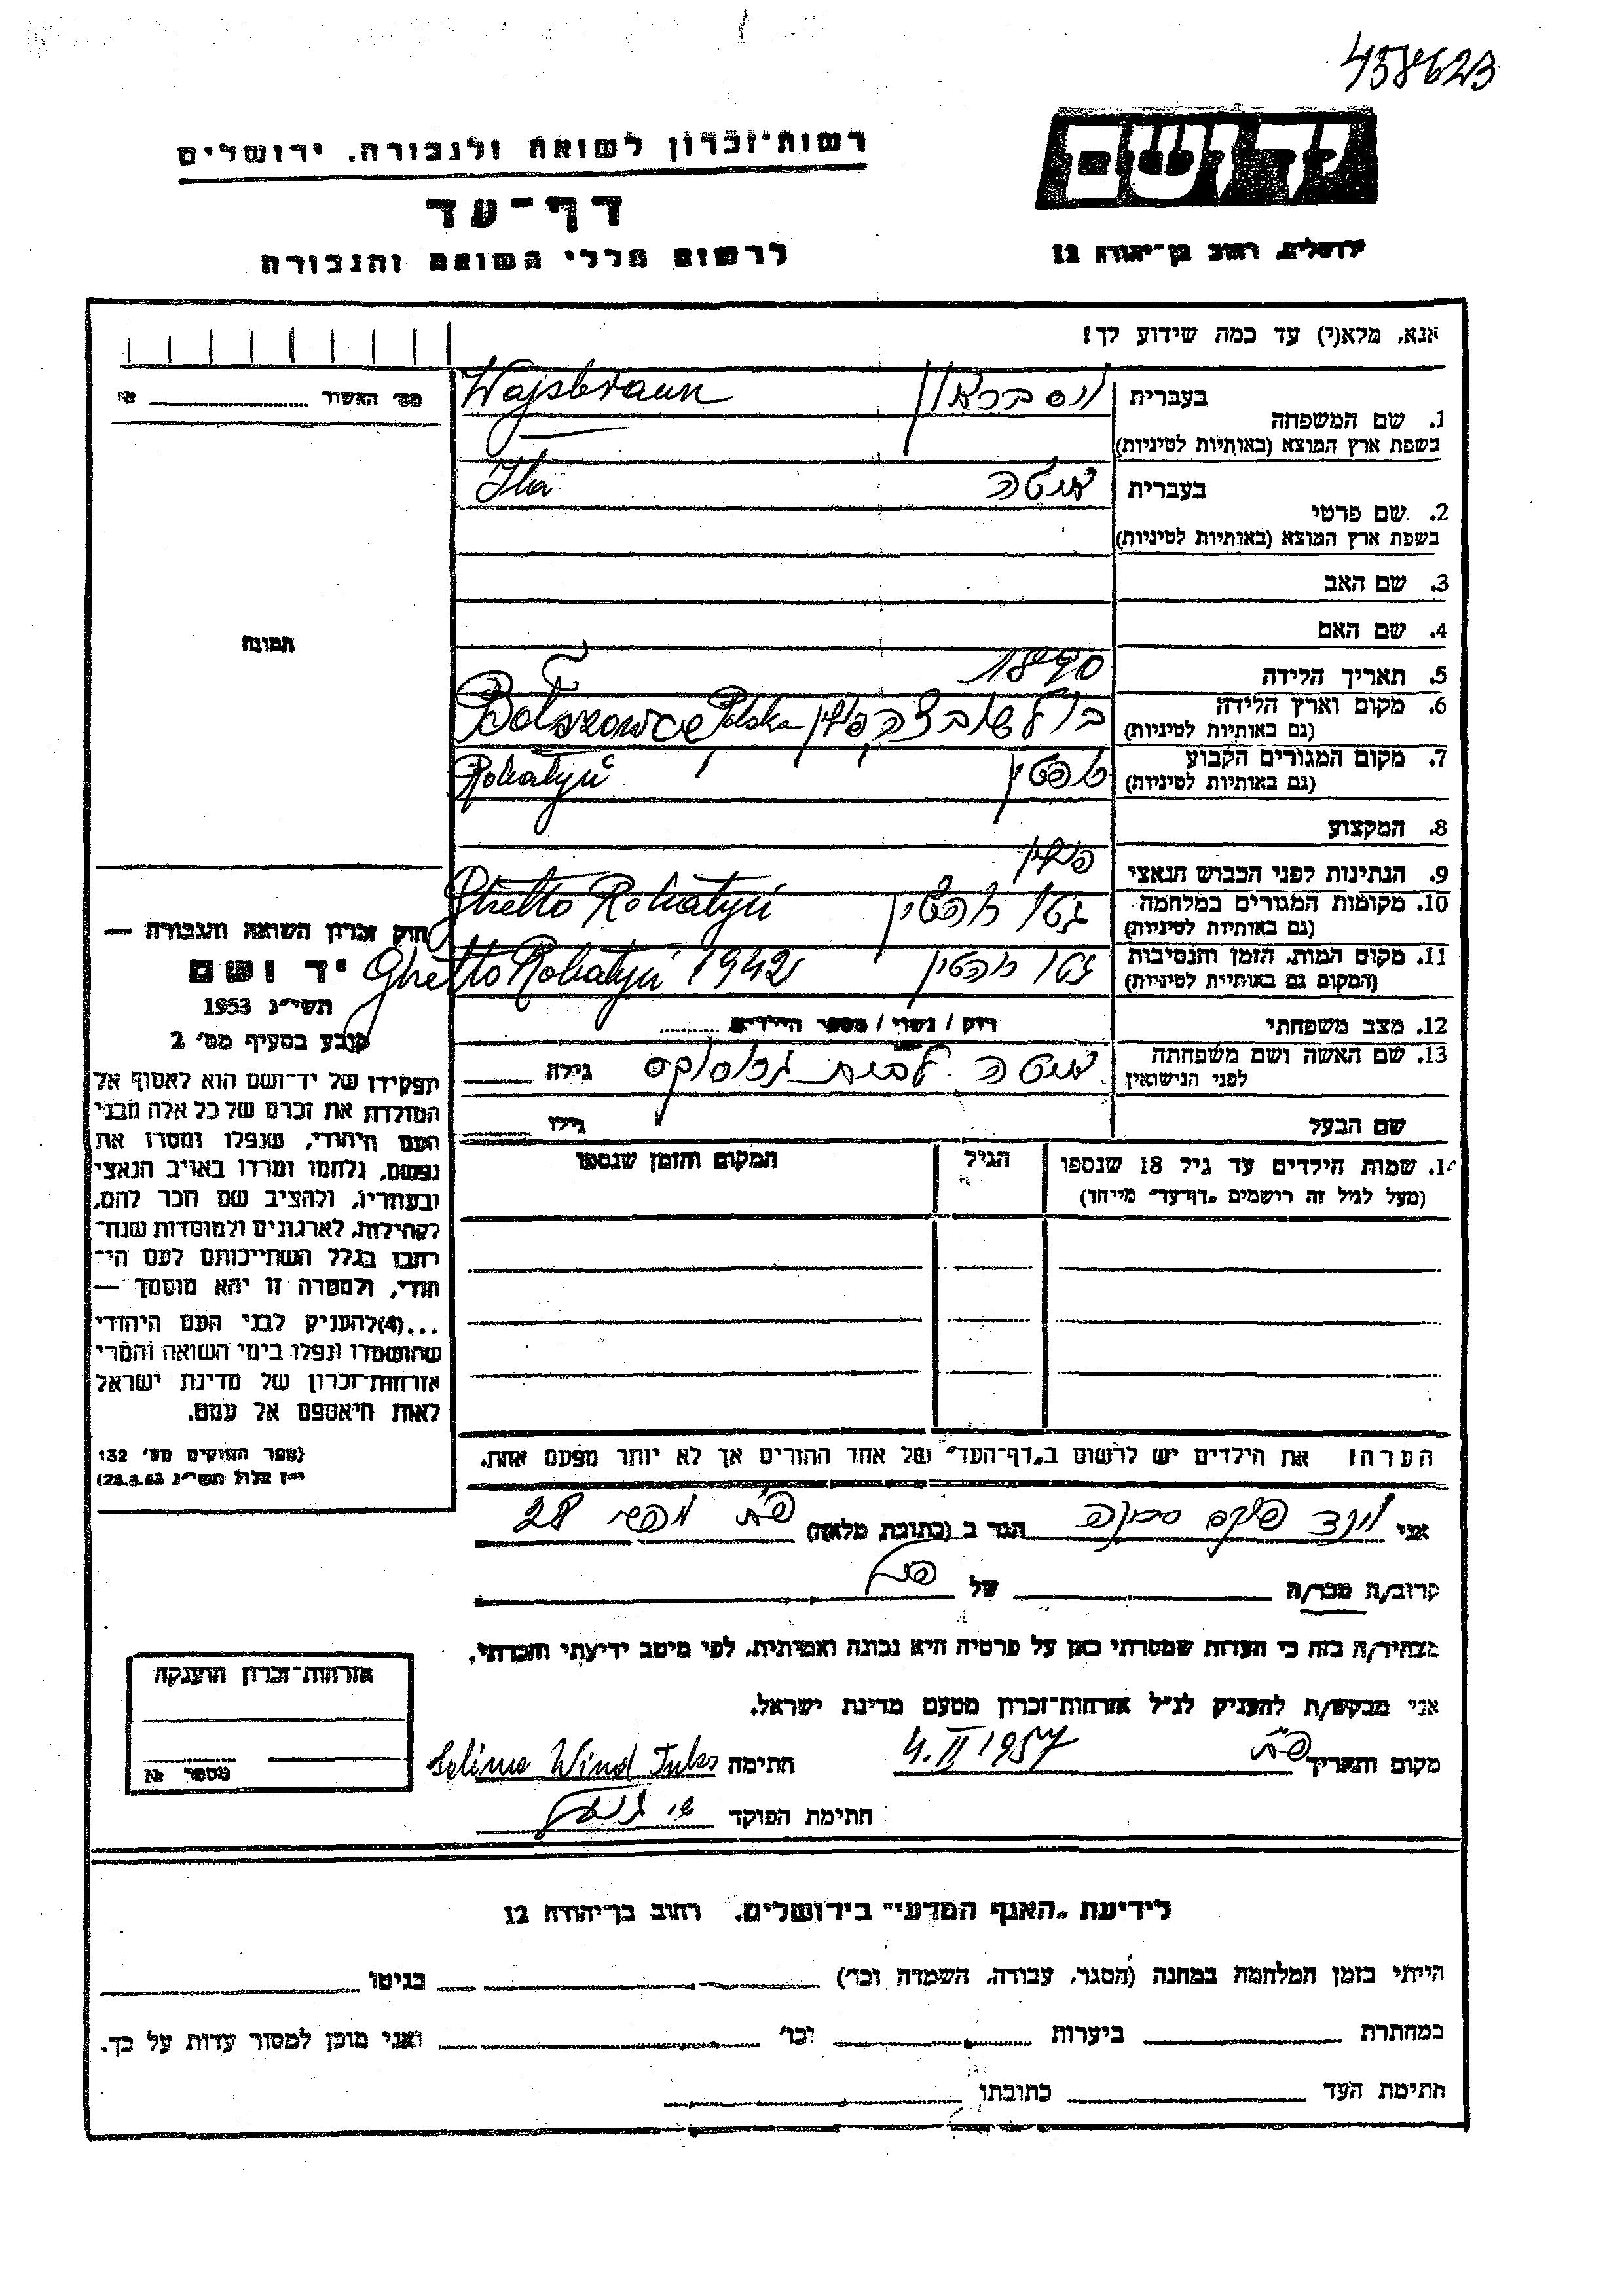 458623
רשות־זכרון לשואה ולגבורה, ירושלים
יד ושם
דף־עד
לרשום חללי השואה והגבורה
ירושלים, רחוב בן־יהודה 12
אנא, מלא(י) עד כמה שידוע לך!
מס׳ האשור № 
1. שם המשפחה
בעברית
Wajsbraun
בשפת ארץ המוצא (באותיות לטיניות)
2. שם פרטי
בעברית איטה
Ita
בשפת ארץ המוצא (באותיות לטיניות)
3. שם האב
4. שם האם
תמונה
5. תאריך הלידה 1890
6. מקום וארץ הלידה
(גם באותיות לטיניות)
בולשובצה פולין Bołszowce Polska
7. מקום המגורים הקבוע
(גם באותיות לטיניות)
Rohatyń
8. המקצוע
9. הנתינות לפני הכבוש הנאצי פולין
10. מקומות המגורים במלחמה
(גם באותיות לטיניות)
גטו Ghetto Rohatyń
11. מקום המות, הזמן והנסיבות
(המקום גם באותיית לטיניות)
גטו Ghetto Rohatyń 1942
12. מצב משפחתי רווק / נשוי / מספר הילדים
13. שם האשה ושם משפחתה
לפני הנישואין
איטה לבית גילה
שם הבעל גילו
14. שמות הילדים עד גיל 18 שנספו
(מעל לגיל זה רושמים „דף־עד״ מייחד)
הגיל
המקום והזמן שנספו
חוק זכרון השואה והגבורה —
יד ושם
תשי״ג 1953
קובע בסעיף מס׳ 2
תפקידו של יד־ושם הוא לאסוף אל
המולדת את זכרם של כל אלה מבני
העם היהודי, שנפלו ומסרו את
נפשם, נלחמו ומרדו באויב הנאצי
ובעוזריו, ולהציב שם וזכר להם,
לקהילות, לארגונים ולמוסדות שנח־
רחבו בגלל השתייכותם לעם הי־
הודי, ולמטרה זו יהא מוסמך —
...(4)להעניק לבני העם היהודי
שהושמדו ונפלו בימי השואה והמרי
אזרחות־זכרון של מדינת ישראל
לאות היאספם אל עמם.
(ספר החוקים מס׳ 132
י״ז אלול תשי״ג 28.8.53)
הערה! את הילדים יש לרשום ב„דף־העד״ של אחד ההורים אך לא יותר מפעם אחת.
אני הגר ב (כתובת מלאה) 28
קרוב/ה מכר/ה של
מצהיר/ה בזה כי העדות שמסרתי כאן על פרטיה היא נכונה ואמיתית, לפי מיטב ידיעתי והכרתי,
אני מבקש/ת להעניק לנ״ל אזרחות־זכרון מטעם מדינת ישראל.
מקום ותאריך 4.II 1957 חתימה Wind
חתימת הפוקד
אזרחות־זכרון הוענקה
מספר №
לידיעת „האגף המדעי״ בירושלים, רחוב בן־יהודה 12
הייתי בזמן המלחמה במחנה (הסגר, עבודה, השמדה וכו׳) בגיטו
במחתרת ביערות וכו׳ ואני מוכן למסור עדות על כך.
חתימת העד כתובתו